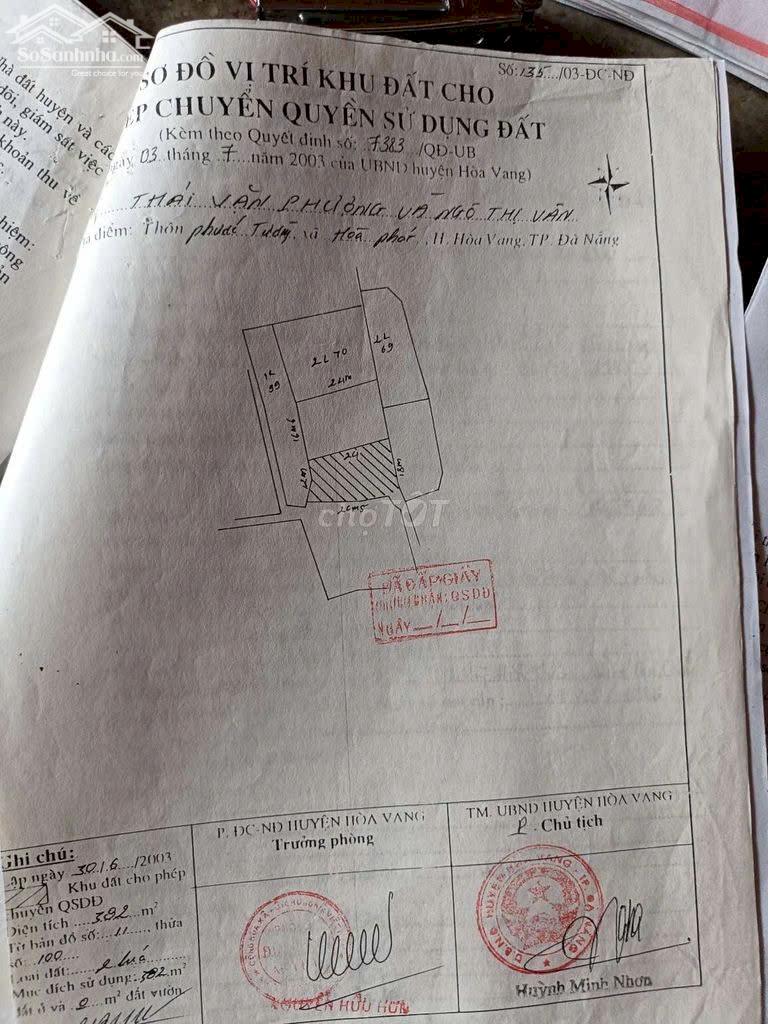 SoSanhnha.com
Great choice for you
nhà đất huyện và các
dõi, giám sát việc
này.
khoán thu về
Số: 135.../03-ĐC-NĐ
SƠ ĐỒ VỊ TRÍ KHU ĐẤT CHO
ÉP CHUYỂN QUYỀN SỬ DỤNG ĐẤT
(Kèm theo Quyết định số: 7383 /QĐ-UB
ngày 03 tháng 7 năm 2003 của UBND huyện Hòa Vang)
THÁI VĂN PHƯƠNG VÀ NGÔ THỊ VÂN
điểm: Thôn phước Tường, xã Hoà phát, H. Hòa Vang, TP. Đà Nẵng
2L 70
24m
2L
69
99
16m9
24
12m
18m
26m5
chợTỐT
ĐÃ CẤP GIẤY
CHỨNG NHẬN: QSDĐ
NGÀY __/__/__
P. ĐC-NĐ HUYỆN HÒA VANG
Trưởng phòng
NGUYỄN HỮU HƠN
TM. UBND HUYỆN HÒA VANG
P. Chủ tịch
U.B.N.D HUYỆN HÒA VANG - T.P ĐÀ NẴNG
Huỳnh Minh Nhơn
Ghi chú:
Lập ngày 30/6 /2003
Khu đất cho phép
chuyển QSDĐ
Diện tích ....382... m²
Tờ bản đồ số: ..11.., thửa
số: 100
Loại đất: 2 lúa
Mục đích sử dụng: 382 m²
đất ở và 0 m² đất vườn